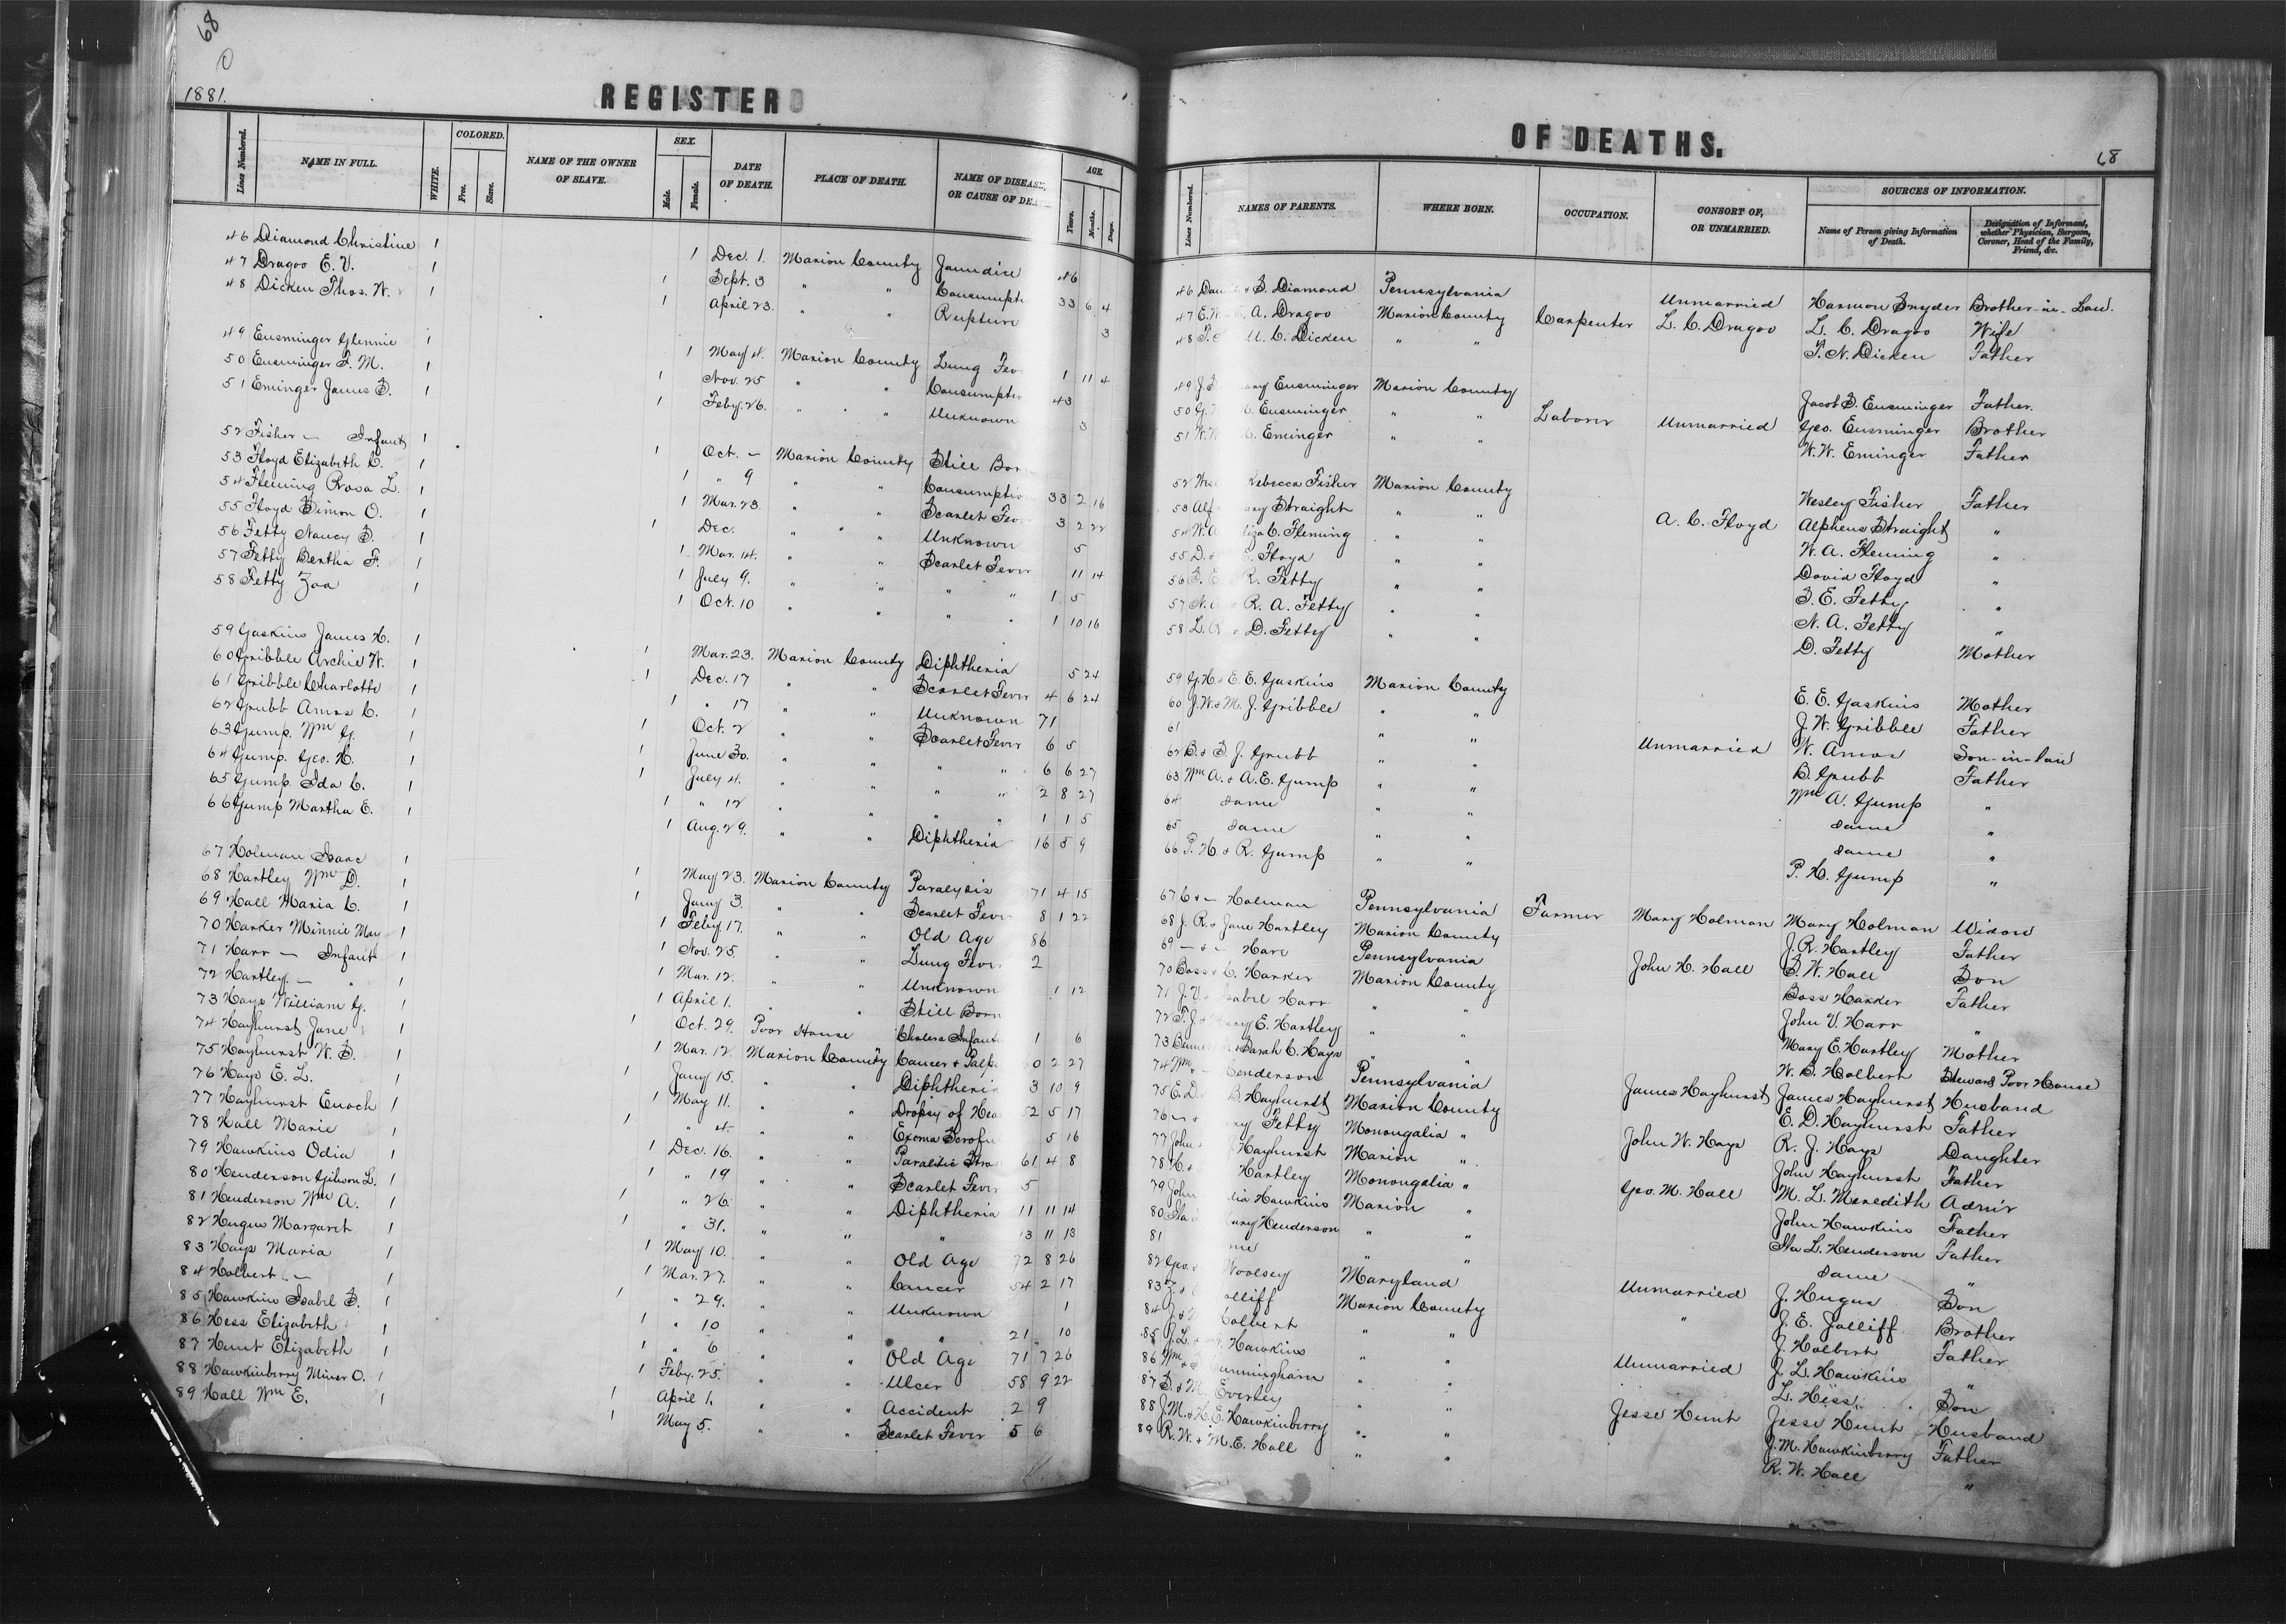 68
1881.
REGISTER
Lines Numbered. NAME IN FULL. WHITE. COLORED. Free. Slave. NAME OF THE OWNER OF SLAVE. SEX. Male. Female. DATE OF DEATH. PLACE OF DEATH. NAME OF DISEASE, OR CAUSE OF DEA AGE. Years. Months. Days.
46 Diamond Christine 1 1 Dec. 1. Marion County Jaundice 46
47 Dragoo E. V. 1 1 Sept. 3 " " Consumpti 33 6 4
48 Dicken Thos. W. 1 1 April 23. " " Rupture 3
49 Ensminger Glennie 1 1 May 4. Marion County Lung Fev 1 11 4
50 Ensminger F. M. 1 1 Nov. 25 " " Consumptio 43
51 Eminger James S. 1 1 Feby. 26. " " Unknown 3
52 Fisher — Infant 1 1 Oct. — Marion County Still Bor
53 Floyd Elizabeth C. 1 1 " 9 " " Consumptio 33 2 16
54 Fleming Rosa L. 1 1 Mar. 23. " " Scarlet Fever 3 2 22
55 Floyd Simon O. 1 1 Dec. " " Unknown 5
56 Fetty Nancy S. 1 1 Mar. 14. " " Scarlet Fever 11 14
57 Fetty Bertha F. 1 1 July 9. " " " " 1 5
58 Fetty Zoa 1 1 Oct. 10 " " " " 1 10 16
59 Gaskins James H. 1 1 Mar. 23. Marion County Diphtheria 5 24
60 Gribble Archie W. 1 1 Dec. 17 " " Scarlet Fever 4 6 24
61 Gribble Charlotte 1 1 " 17 " " Unknown 71
62 Grubb Amos C. 1 1 Oct. 2 " " Scarlet Fever 6 5
63 Gump. Wm G. 1 1 June 30. " " " " 6 6 27
64 Gump. Geo. H. 1 1 July 4. " " " " 2 8 27
65 Gump. Ida C. 1 1 " 12 " " " " 1 1 5
66 Gump Martha E. 1 1 Aug. 29. " " Diphtheria 16 5 9
67 Holman Isaac 1 1 May 23. Marion County Paralysis 71 4 15
68 Hartley Wm D. 1 1 Jany 3. " " Scarlet Fever 8 1 22
69 Hall Maria C. 1 1 Feby. 17. " " Old Age 86
70 Harker Minnie May 1 1 Nov. 25. " " Lung Fever 2
71 Harr — Infant 1 1 Mar. 12. " " Unknown 1 12
72 Hartley — " 1 1 April 1. " " Still Born
73 Hays William G. 1 1 Oct. 29. Poor House Cholera Infant 1 6
74 Hayhurst Jane 1 1 Mar. 12. Marion County Cancer & Palp 0 2 27
75 Hayhurst W. S. 1 1 Jany 15. " " Diphtheria 3 10 9
76 Hays E. L. 1 1 May 11. " " Dropsy of Hea 52 5 17
77 Hayhurst Enoch 1 1 " 4 " " Exoma Scrofu 5 16
78 Hall Marie 1 1 Dec. 16. " " Paralitic Stro 61 4 8
79 Hawkins Odia 1 1 " 19 " " Scarlet Fever 5
80 Henderson Gibson L. 1 1 " 26. " " Diphtheria 11 11 14
81 Henderson Wm A. 1 1 " 31. " " " 13 11 13
82 Hugus Margaret 1 1 May 10. " " Old Age 72 8 26
83 Hays Maria 1 1 Mar. 27. " " Cancer 54 2 17
84 Holbert — 1 1 " 29. " " Unknown 1
85 Hawkins Isabel S. 1 1 " 10 " " " 21 10
86 Hess Elizabeth 1 1 " 6 " " Old Age 71 7 26
87 Hunt Elizabeth 1 1 Feby. 25. " " Ulser 58 9 22
88 Hawkinberry Miner O. 1 1 April 1. " " Accident 2 9
89 Hall Wm E. 1 1 May 5. " " Scarlet Fever 5 6
OF DEATHS.
68
Lines Numbered. NAMES OF PARENTS. WHERE BORN. OCCUPATION. CONSORT OF, OR UNMARRIED. SOURCES OF INFORMATION. Name of Person giving Information of Death. Designation of Informant, whether Physician, Surgeon, Coroner, Head of the Family, Friend, &c.
46 & S. Diamond Pennsylvania Unmarried Harmon Snyder Brother-in-Law.
47 E. A. Dragoo Marion County Carpenter L. C. Dragoo L. C. Dragoo Wife
48 M. C. Dicken " " T. N. Dicken Father
49 J. S. Ensminger Marion County Jacob S. Ensminger Father.
50 G. Ensminger " " Laborer Unmarried Geo. Ensminger Brother
51 W. W. Eminger " " W. W. Eminger Father
52 Rebecca Fisher Marion County Wesley Fisher Father
53 Alf Straight " " A. C. Floyd Alpheus Straight "
54 W. A. liza C. Fleming " " W. A. Fleming "
55 D. Floyd " " David Floyd "
56 S. E. R. Fetty " " S. E. Fetty "
57 N. & R. A. Fetty " " N. A. Fetty "
58 L. & D. Fetty " " D. Fetty Mother
59 G. H. & E. E. Gaskins Marion County E. E. Gaskins Mother
60 J. W. & M. J. Gribble " " J. W. Gribble Father
61 " " Unmarried W. Amos Son-in-law
62 B. & S. J. Grubb " " B. Grubb Father
63 Wm A. & A. E. Gump " " Wm A. Gump "
64 same " " same "
65 same " " same "
66 P. H. & R. Gump " " P. H. Gump "
67 C & — Holman Pennsylvania Farmer Mary Holman Mary Holman Widow
68 J. R. & Jane Hartley Marion County J. R. Hartley Father
69 — & — Harr Pennsylvania John H. Hall S. W. Hall Son
70 Boss & C. Harker Marion County Boss Harker Father
71 J. V. Isabel Harr " " John V. Harr "
72 T. J. & Mary E. Hartley " " Mary E. Hartley Mother
73 & Sarah C. Hays " " W. B. Holbert Steward Poor House
74 Wm & — Henderson Pennsylvania James Hayhurst James Hayhurst Husband
75 E. D. & B Hayhurst Marion County E. D. Hayhurst Father
76 — & Fetty Monongalia " John W. Hays R. J. Hays Daughter
77 John & Hayhurst Marion " John Hayhurst Father
78 H. & Hartley Monongalia " Geo. M. Hall M. L. Meredith Admr
79 John Hawkins Marion " John Hawkins Father
80 Henderson " " L. Henderson Father
81 " " same "
82 Geo. & Woolsey Maryland Unmarried J. Hugus Son
83 olliff Marion County " J. E. Jolliff Brother
84 J. & Holbert " " J. Holbert Father
85 J. L. & Hawkins " " Unmarried J. L. Hawkins "
86 Wm & Cunningham " " L. Hess Son
87 S. & M. Everley " " Jesse Hunt Jesse Hunt Husband
88 J. M. & H. E. Hawkinberry " " J. M. Hawkinberry Father
89 R. W. & M. E. Hall " " R. W. Hall "